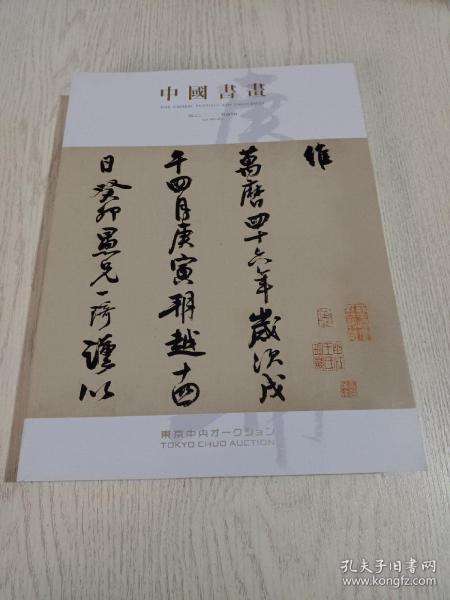 中國書畫
維
萬曆四十六年歲次戊
午四月庚寅朔越十四
日癸卯愚兄一琦謹以
東京中央オークション
TOKYO CHUO AUCTION
孔夫子旧书网
www.kongfz.com